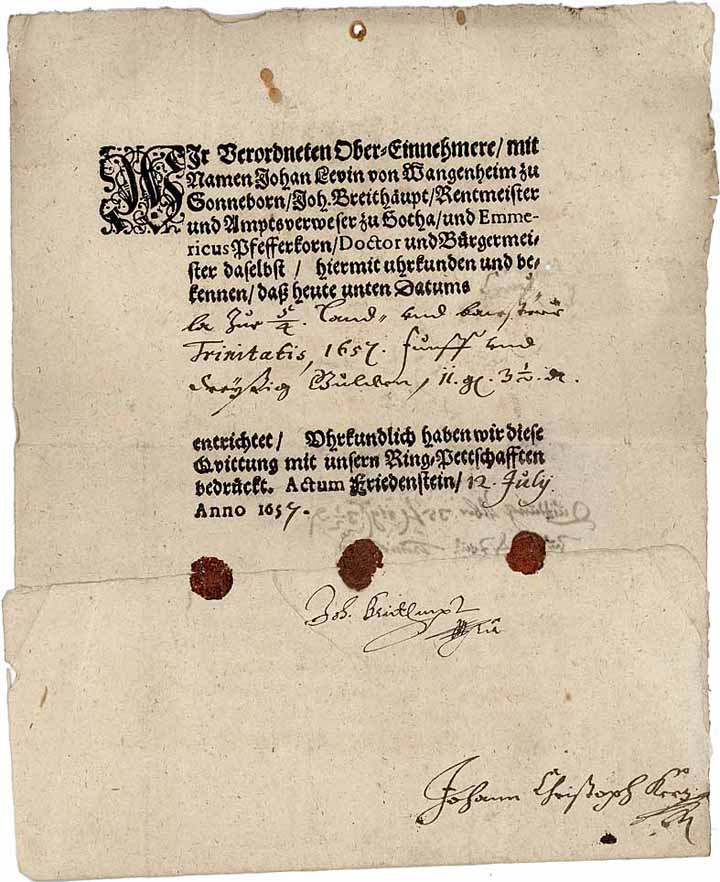 WIr Verordneten Ober-Einnehmere/ mit
Namen Johan Levin von Wangenheim zu
Sonneborn/ Joh. Breithäupt/ Rentmeister
und Amptsverweser zu Gotha/ und Emme-
ricus Pfefferkorn/ Doctor und Bürgermei-
ster daselbst / hiermit uhrkunden und be-
kennen/ daß heute unten Datums
zur 5/4. Land- und
Trinitatis, 1657. funff und
dreyßig Gulden, 11. gl. 3½. d.
entrichtet/ Uhrkundlich haben wir diese
Qvittung mit unsern Ring-Pettschafften
bedrückt. Actum Friedenstein/ 12. July
Anno 1657.
Joh. Breithaupt
Johann Christoph